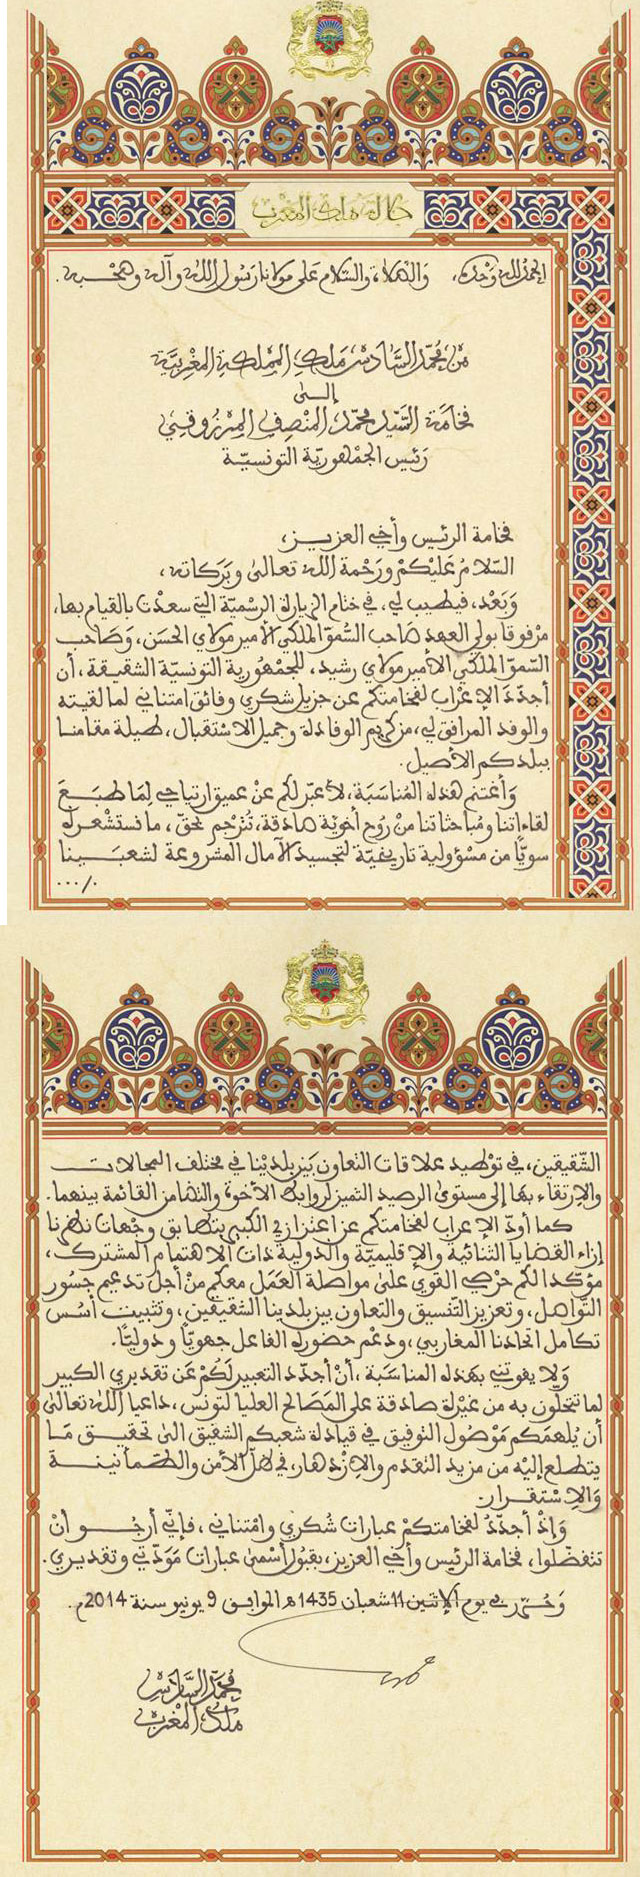 جلالة ملك المغرب
الحمد لله وحده، والصلاة والسلام على مولانا رسول الله وآله وصحبه.
من محمد السادس ملك المملكة المغربية
إلى
فخامة السيد محمد المنصف المرزوقي
رئيس الجمهورية التونسية
فخامة الرئيس وأخي العزيز،
السلام عليكم ورحمة الله تعالى وبركاته،
وبعد، فيطيب لي، في ختام الزيارة الرسمية التي سعدت بالقيام بها،
مرفوقا بولي العهد صاحب السمو الملكي الأمير مولاي الحسن، وصاحب
السمو الملكي الأمير مولاي رشيد، للجمهورية التونسية الشقيقة، أن
أجدد الإعراب لفخامتكم عن جزيل شكري وفائق امتناني لما لقيته
والوفد المرافق لي، من كريم الوفادة وجميل الاستقبال، طيلة مقامنا
ببلدكم الأصيل.
وأغتنم هذه المناسبة، لأعبر لكم عن عميق ارتياحي لما طبع
لقاءاتنا ومباحثاتنا من روح أخوية صادقة، تترجم بحق، ما نستشعره
سويا من مسؤولية تاريخية لتجسيد الآمال المشروعة لشعبينا
.../.
الشقيقين، في توطيد علاقات التعاون بين بلدينا في مختلف المجالات
والارتقاء بها إلى مستوى الرصيد المتميز لروابط الأخوة والتضامن القائمة بينهما.
كما أود الإعراب لفخامتكم عن اعتزازي الكبير بتطابق وجهات نظرنا
إزاء القضايا الثنائية والإقليمية والدولية ذات الاهتمام المشترك،
مؤكدا لكم حرصي القوي على مواصلة العمل معكم من أجل تدعيم جسور
التواصل، وتعزيز التنسيق والتعاون بين بلدينا الشقيقين، وتثبيت أسس
تكامل اتحادنا المغاربي، ودعم حضوره الفاعل جهويا ودوليا.
ولا يفوتني بهذه المناسبة، أن أجدد التعبير لكم عن تقديري الكبير
لما تتحلون به من غيرة صادقة على المصالح العليا لتونس، داعيا الله تعالى
أن يلهمكم موصول التوفيق في قيادة شعبكم الشقيق إلى تحقيق ما
يتطلع إليه من مزيد التقدم والازدهار، في ظل الأمن والطمأنينة
والاستقرار.
وإذ أجدد لفخامتكم عبارات شكري وامتناني، فإني أرجو أن
تتفضلوا، فخامة الرئيس وأخي العزيز، بقبول أسمى عبارات مودتي وتقديري.
وحرر في يوم الإثنين 11 شعبان 1435ه الموافق 9 يونيو سنة 2014م.
محمد السادس
ملك المغرب